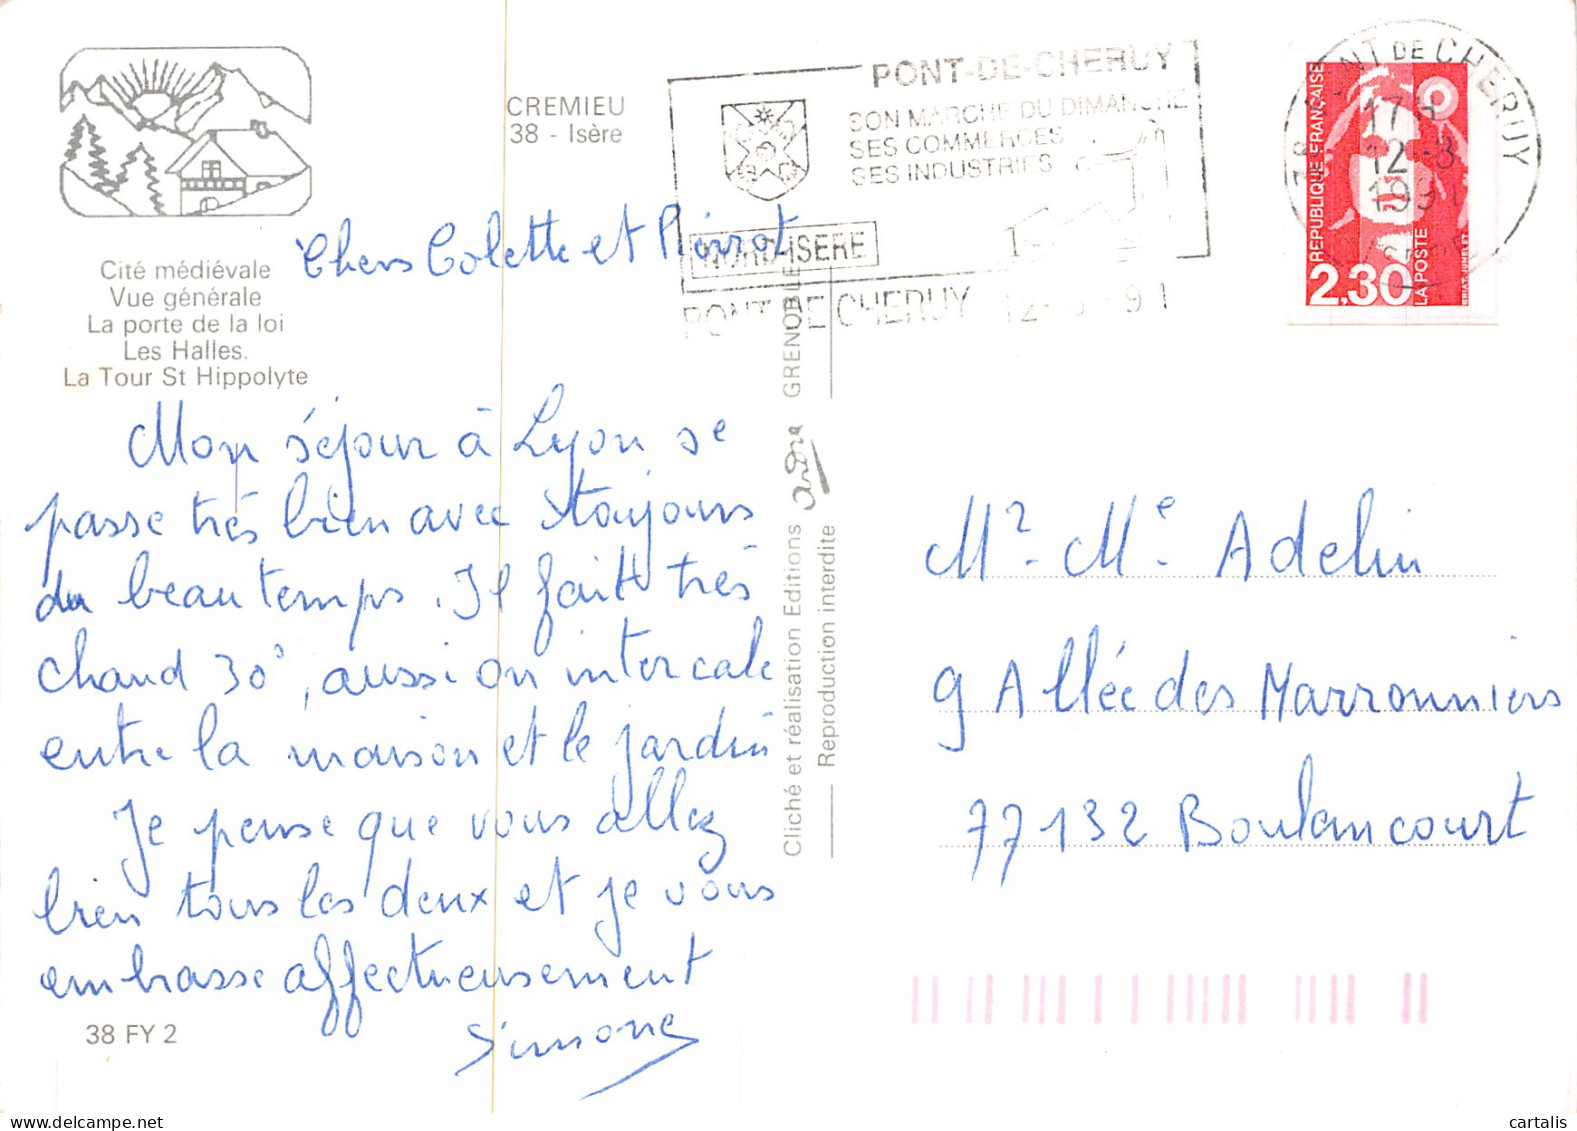 CREMIEU
38 - Isère
Cité médiévale
Vue générale
La porte de la loi
Les Halles.
La Tour St Hippolyte
PONT-DE-CHERUY
SON MARCHE DU DIMANCHE
SES COMMERCES
SES INDUSTRIES
NORD-ISERE
PONT DE CHERUY 12-8 91
38 PONT DE CHERUY
17H
12-8
1991
ISERE
REPUBLIQUE FRANÇAISE
2,30
LA POSTE
Chers Colette et Pierrot
Mon séjour à Lyon se
passe très bien avec toujours
du beau temps. Il fait très
chaud 30°, aussi on intercale
entre la maison et le jardin
Je pense que vous allez
bien tous les deux et je vous
embrasse affectueusement
Simone
38 FY 2
Cliché et réalisation Editions andré GRENOBLE
Reproduction interdite
Mr. Me. Adelin
9 Allée des Marronniers
77132 Boulancourt
www.delcampe.net
cartalis